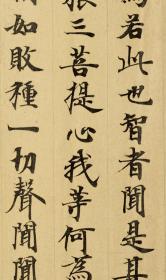 為若此也智者聞是其
三菩提心我等何為
如敗種一切聲聞聞